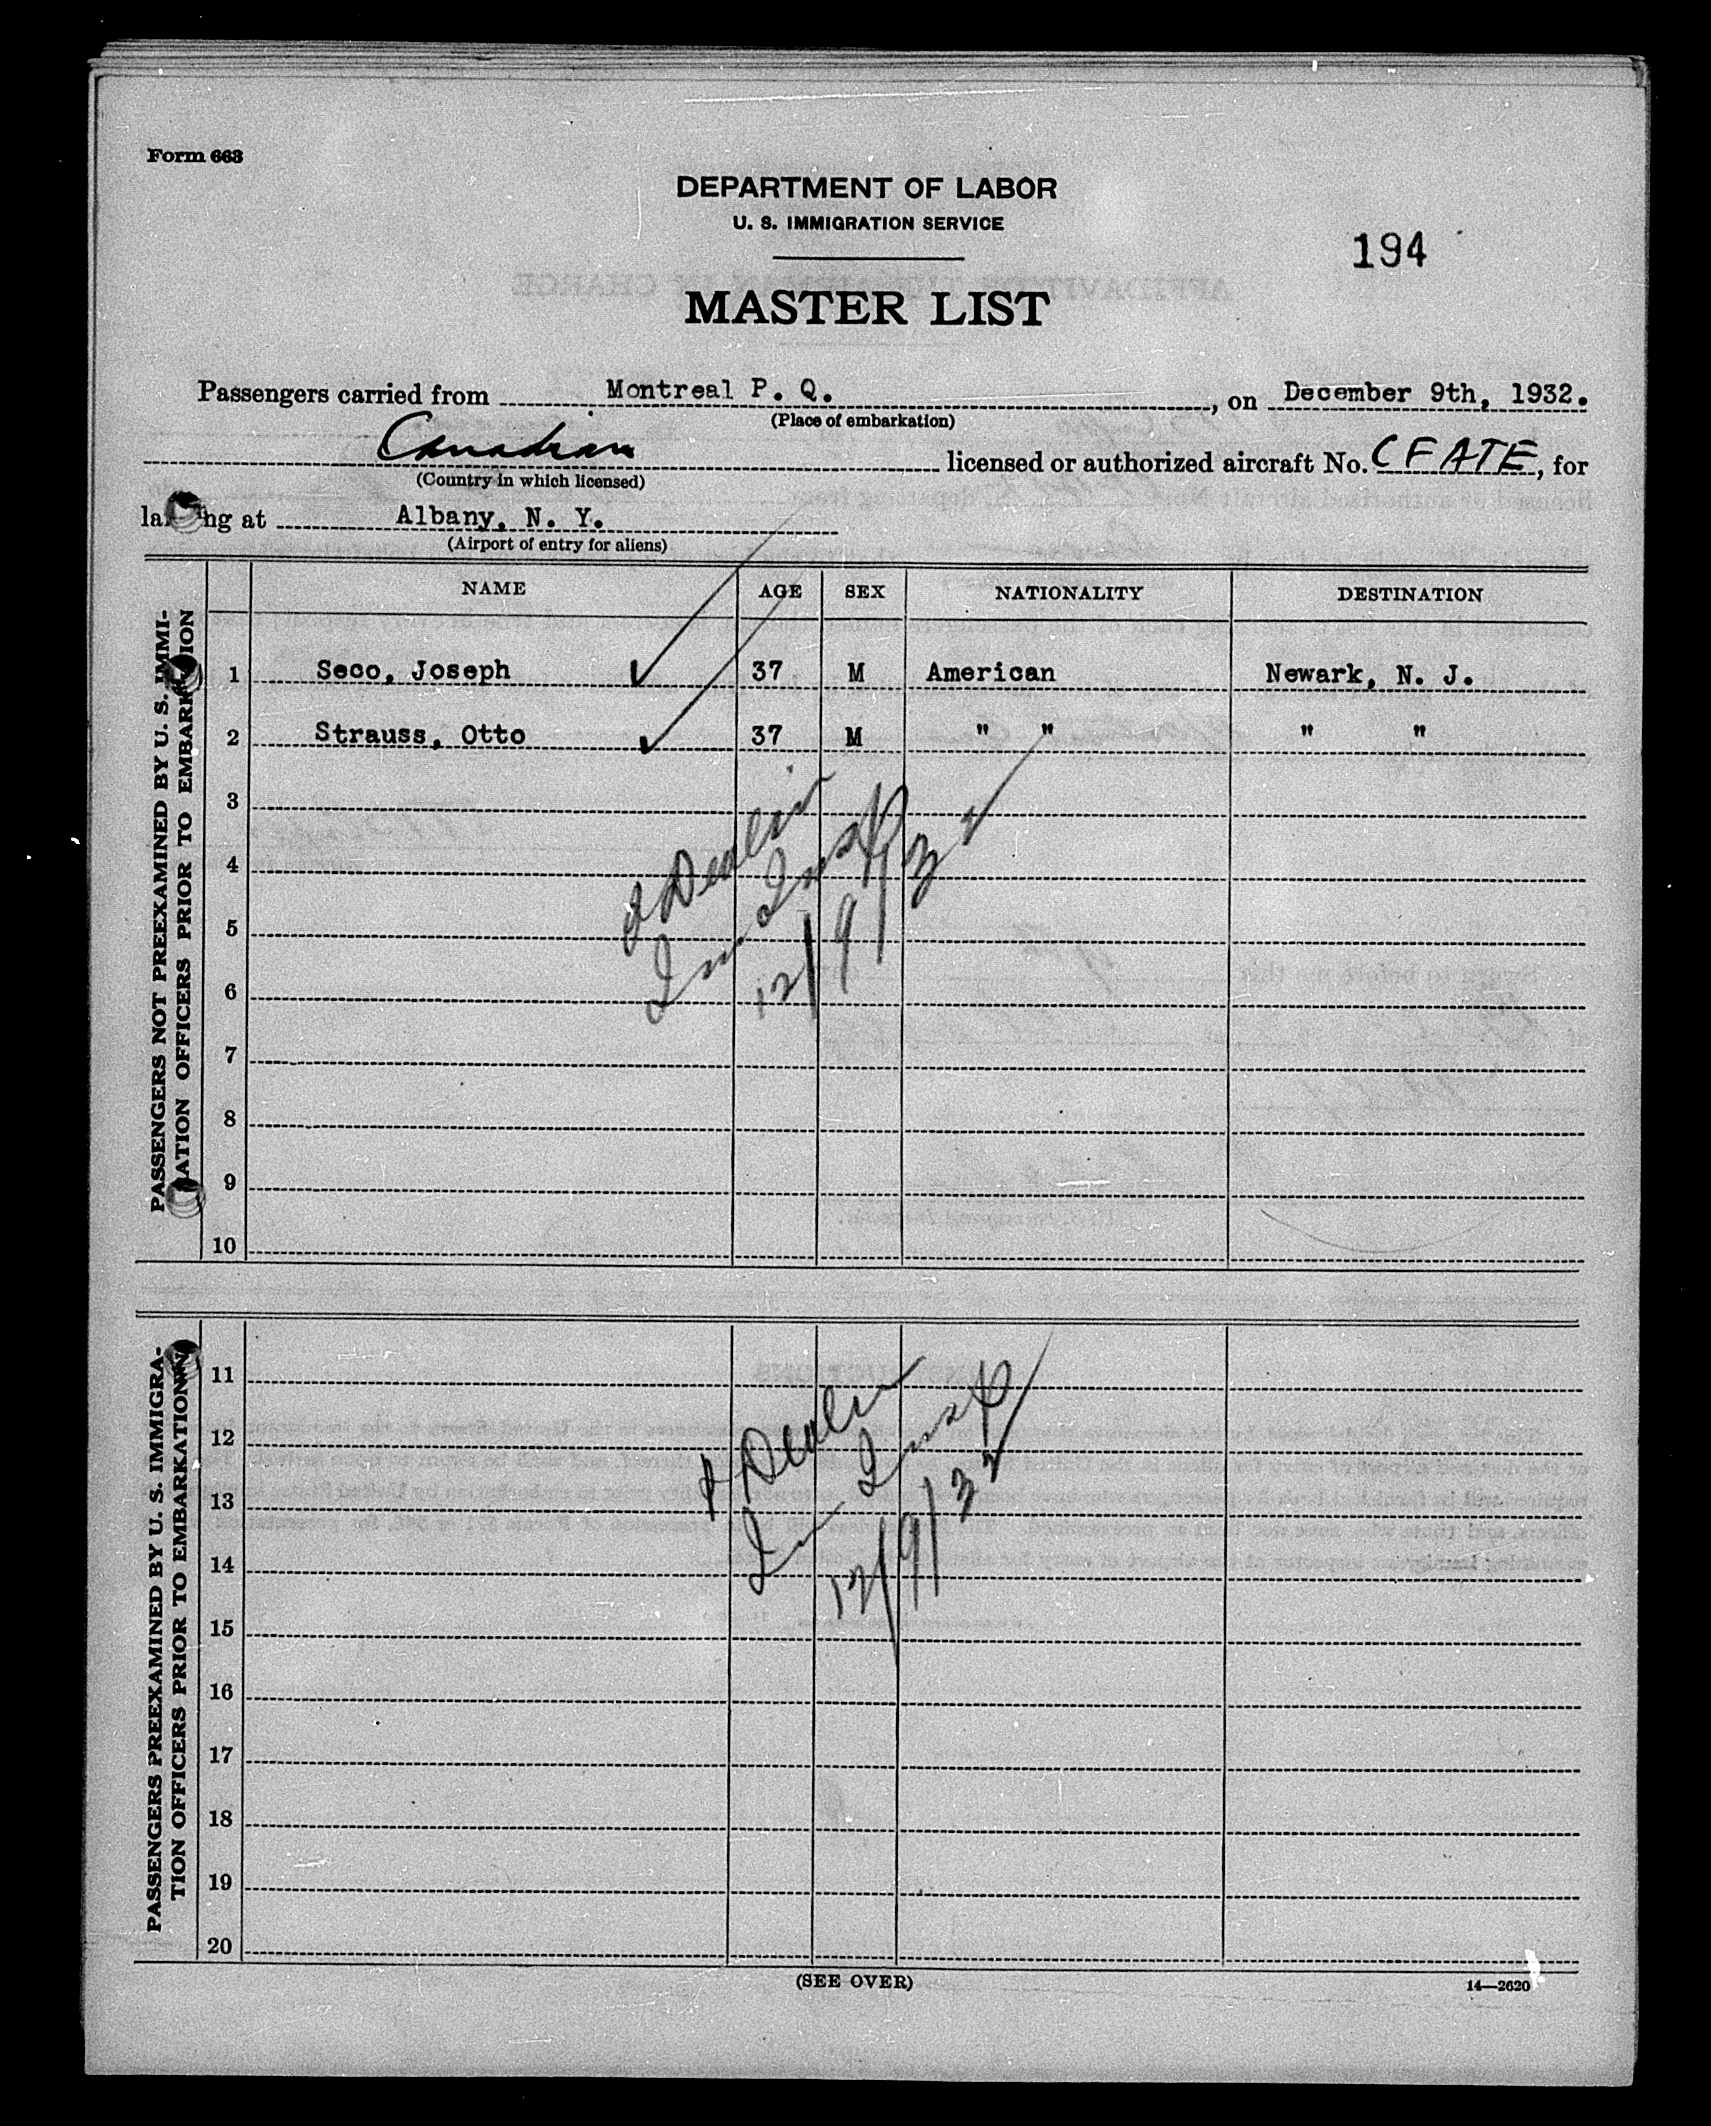 Form 663
DEPARTMENT OF LABOR
U. S. IMMIGRATION SERVICE
194
MASTER LIST
Passengers carried from Montreal P. Q., on December 9th, 1932.
(Place of embarkation)
Canadian licensed or authorized aircraft No. CFATE, for
(Country in which licensed)
landing at Albany, N. Y.
(Airport of entry for aliens)
NAME AGE SEX NATIONALITY DESTINATION
PASSENGERS NOT PREEXAMINED BY U. S. IMMI-
GRATION OFFICERS PRIOR TO EMBARKATION
1 Seco, Joseph 37 M American Newark, N. J.
2 Strauss, Otto 37 M " " " "
3
4
5
6
7
8
9
10
Im. Inspt
12/9/32
PASSENGERS PREEXAMINED BY U. S. IMMIGRA-
TION OFFICERS PRIOR TO EMBARKATION
11
12
13
14
15
16
17
18
19
20
Im Inspt
12/9/32
(SEE OVER)
14—2620